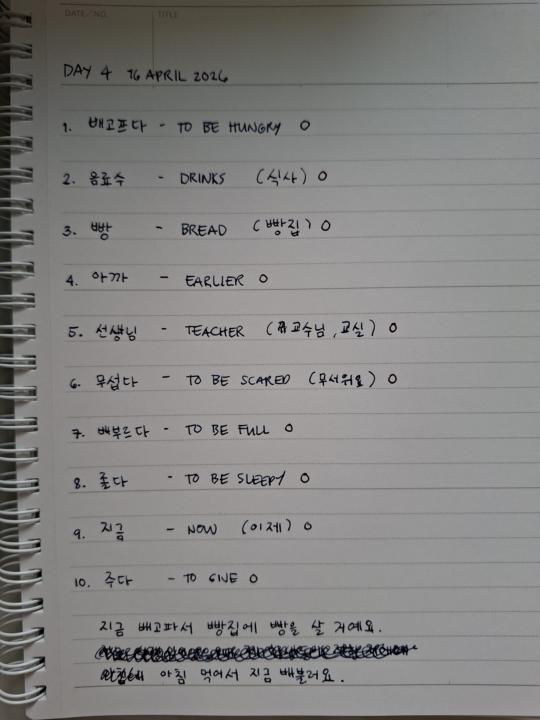 DATE/NO. TITLE
DAY 4 16 APRIL 2026
1. 배고프다 - TO BE HUNGRY O
2. 음료수 - DRINKS (식사) O
3. 빵 - BREAD (빵집) O
4. 아까 - EARLIER O
5. 선생님 - TEACHER (교수님, 교실) O
6. 무섭다 - TO BE SCARED (무서워요) O
7. 배부르다 - TO BE FULL O
8. 졸다 - TO BE SLEEPY O
9. 지금 - NOW (이제) O
10. 주다 - TO GIVE O
지금 배고파서 빵집에 빵을 살 거예요.
아침 먹어서 지금 배불러요.